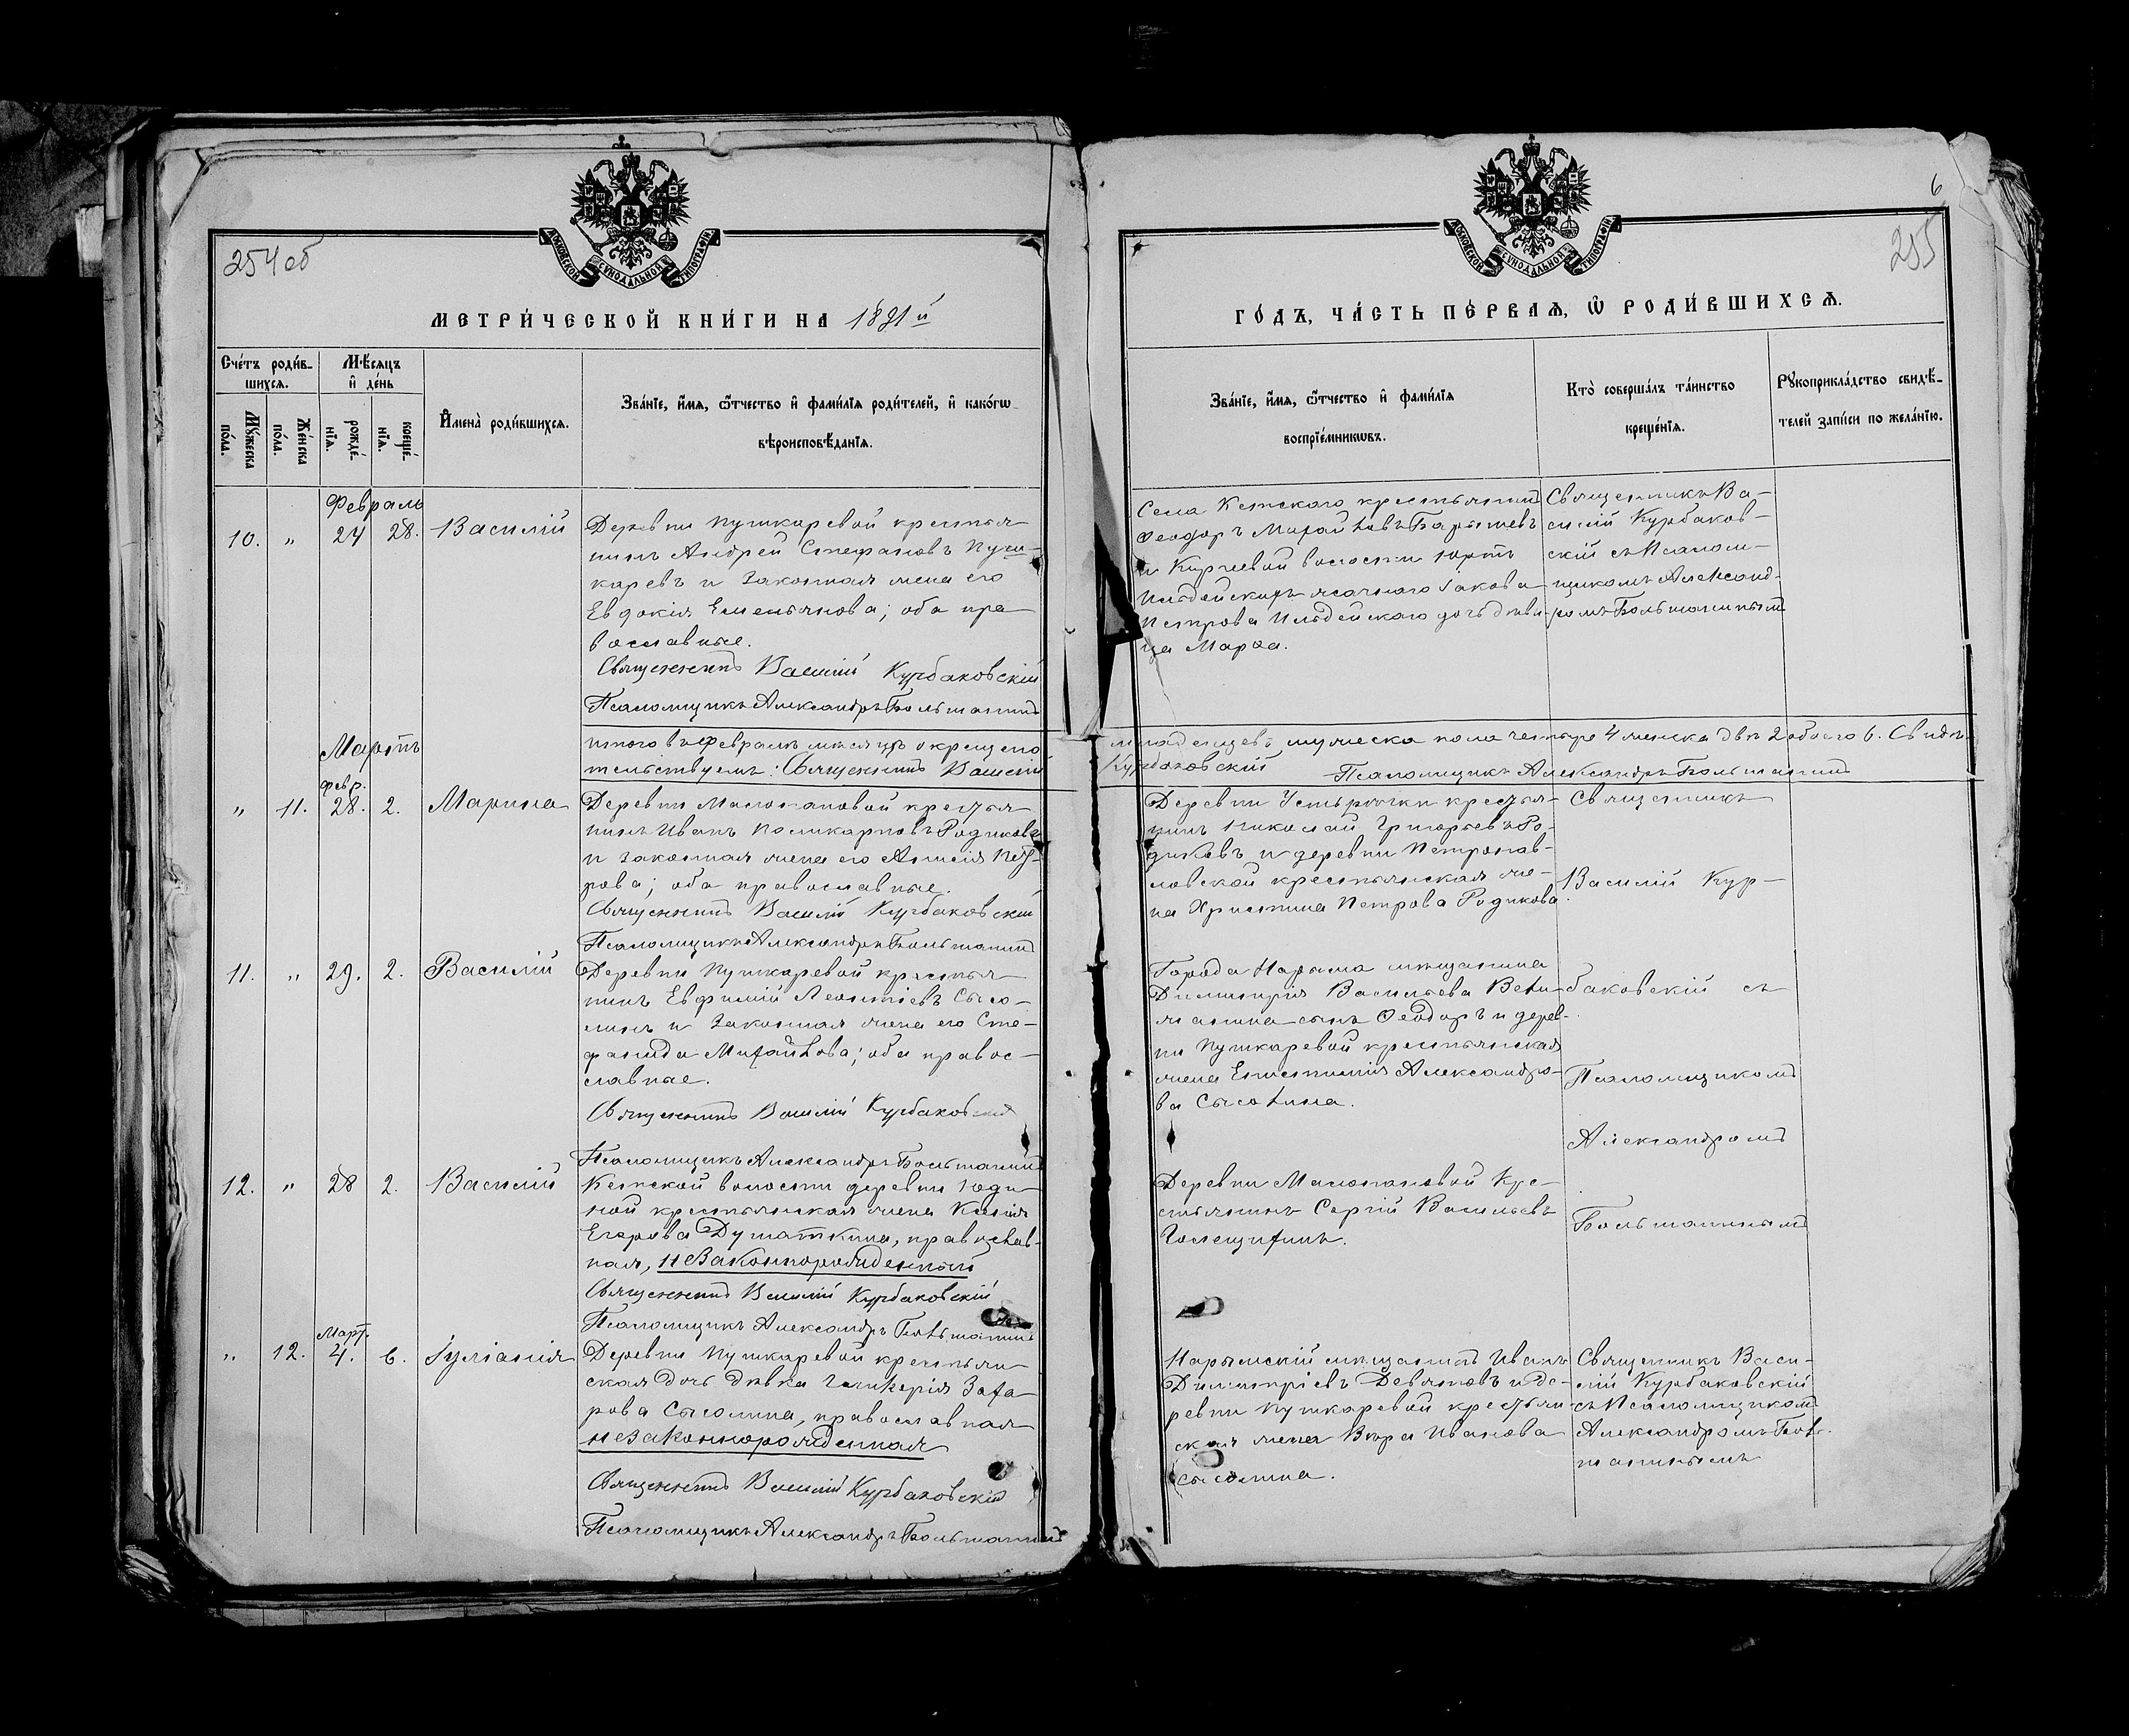 254 об
МОСКОВСКОЙ СѴНОДАЛЬНОЙ ТИПОГРАФІИ
МЕТРИ́ЧЕСКОЙ КНИ́ГИ НА 1891 й
Сче́тъ роди́в-
шихсѧ.
Мѣ́сѧцъ
и҆ де́нь
Му́жеска
по́ла.
Же́нска
по́ла.
рожде́-
нїѧ.
креще́-
нїѧ.
И҆мена̀ роди́вшихсѧ.
Зва́нїе, и҆́мѧ, ѻ҆́тчество и҆ фами́лїѧ роди́телей, и҆ како́гѡ
вѣроисповѣ́данїѧ.
Февраль
10. „ 24 28. Василій
Деревни Пушкаревой крестья-
нинъ Андрей Стефановъ Пуш-
каревъ и законная жена его
Евдокія Емельянова; оба пра-
вославные.
Священникъ Василій Курбаковскій
Псаломщикъ Александръ Большанинъ
Мартъ
итого въ Февралѣ мѣсяцѣ окрещено
тельствуемъ: Священникъ Василій
февр.
„ 11. 28. 2. Марина
Деревни Малопановой крестья-
нинъ Иванъ Поликарповъ Родиковъ
и законная жена его Анисія Пет-
рова; оба православные.
Священникъ Василій Курбаковскій
Псаломщикъ Александръ Большанинъ
11. „ 29. 2. Василій
Деревни Пушкаревой крестья-
нинъ Евфимій Леонтіевъ Сысо-
линъ и законная жена его Сте-
фанида Михайлова; оба правос-
лавные.
Священникъ Василій Курбаковскій
Псаломщикъ Александръ Большанинъ
12. „ 28 2. Василій
Кетской волости деревни Юди-
ной крестьянская жена Ксенія
Егорова Душаткина, православ-
ная, незаконнорожденный
Священникъ Василій Курбаковскій
Псаломщикъ Александръ Большанинъ
Март.
„ 12. 4. 6. Іуліанія
Деревни Пушкаревой крестьян-
ская дочь дѣвка Гликерія Заха-
рова Сысолина, православная
незаконнорожденная
Священникъ Василій Курбаковскій
Псаломщикъ Александръ Большанинъ
6
255
МОСКОВСКОЙ СѴНОДАЛЬНОЙ ТИПОГРАФІИ
ГО́ДЪ, ЧА́СТЬ ПЕ́РВАѦ, Ѡ҆ РОДИ́ВШИХСѦ.
Зва́нїе, и҆́мѧ, ѻ҆́тчество и҆ фами́лїѧ
воспрїе́мникѡвъ.
Кто̀ соверша́лъ та́инство
креще́нїѧ.
Рꙋкоприкла́дство свидѣ́-
телей за́писи по жела́нїю.
Села Кетскаго крестьянинъ
Ѳеодоръ Михайловъ Барышевъ
и Кургеевой волости юртъ
Ильдейскихъ ясачнаго Іакова
Петрова Ильдейскаго дочь дѣви-
ца Марѳа.
Священникъ Ва-
силій Курбаков-
скій съ Псалом-
щикомъ Александ-
ромъ Большанинымъ
младенцевъ мужеска пола четыре 4 женска двѣ 2 обоего 6. Свидѣ-
Курбаковскій Псаломщикъ Александръ Большанинъ
Деревни Устьрѣчки крестья-
нинъ Николай Григорьевъ Ро-
диковъ и деревни Петропав-
ловской крестьянская же-
на Христина Петрова Родикова.
Города Нарыма мѣщанина
Димитрія Васильева Вели-
жанина сынъ Ѳеодоръ и дерев-
ни Пушкаревой крестьянская
жена Епистимія Александро-
ва Сысолина.
Деревни Малопановой кре-
стьянинъ Сергій Васильевъ
Голещихинъ.
Священникъ
Василій Кур-
баковскій съ
Псаломщикомъ
Александромъ
Большанинымъ
Нарымскій мѣщанинъ Иванъ
Димитріевъ Девятовъ и де-
ревни Пушкаревой крестьян-
ская жена Вѣра Иванова
Сысолина.
Священникъ Васи-
лій Курбаковскій
съ Псаломщикомъ
Александромъ Бол-
шанинымъ